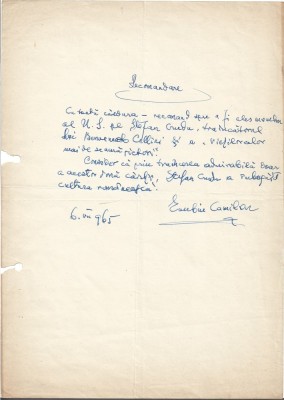 Recomandare
Cu toată căldura – recomand spre a fi ales membru
al U.S. pe Ștefan Crudu, traducătorul
lui Benvenuto Cellini și a „Viețile
mai de seamă pictori".
Consider că prin traducerea admirabilă
a acestor două cărți, Ștefan Crudu a îmbogățit
cultura românească.
6. VII 965
Eusebiu Camilar